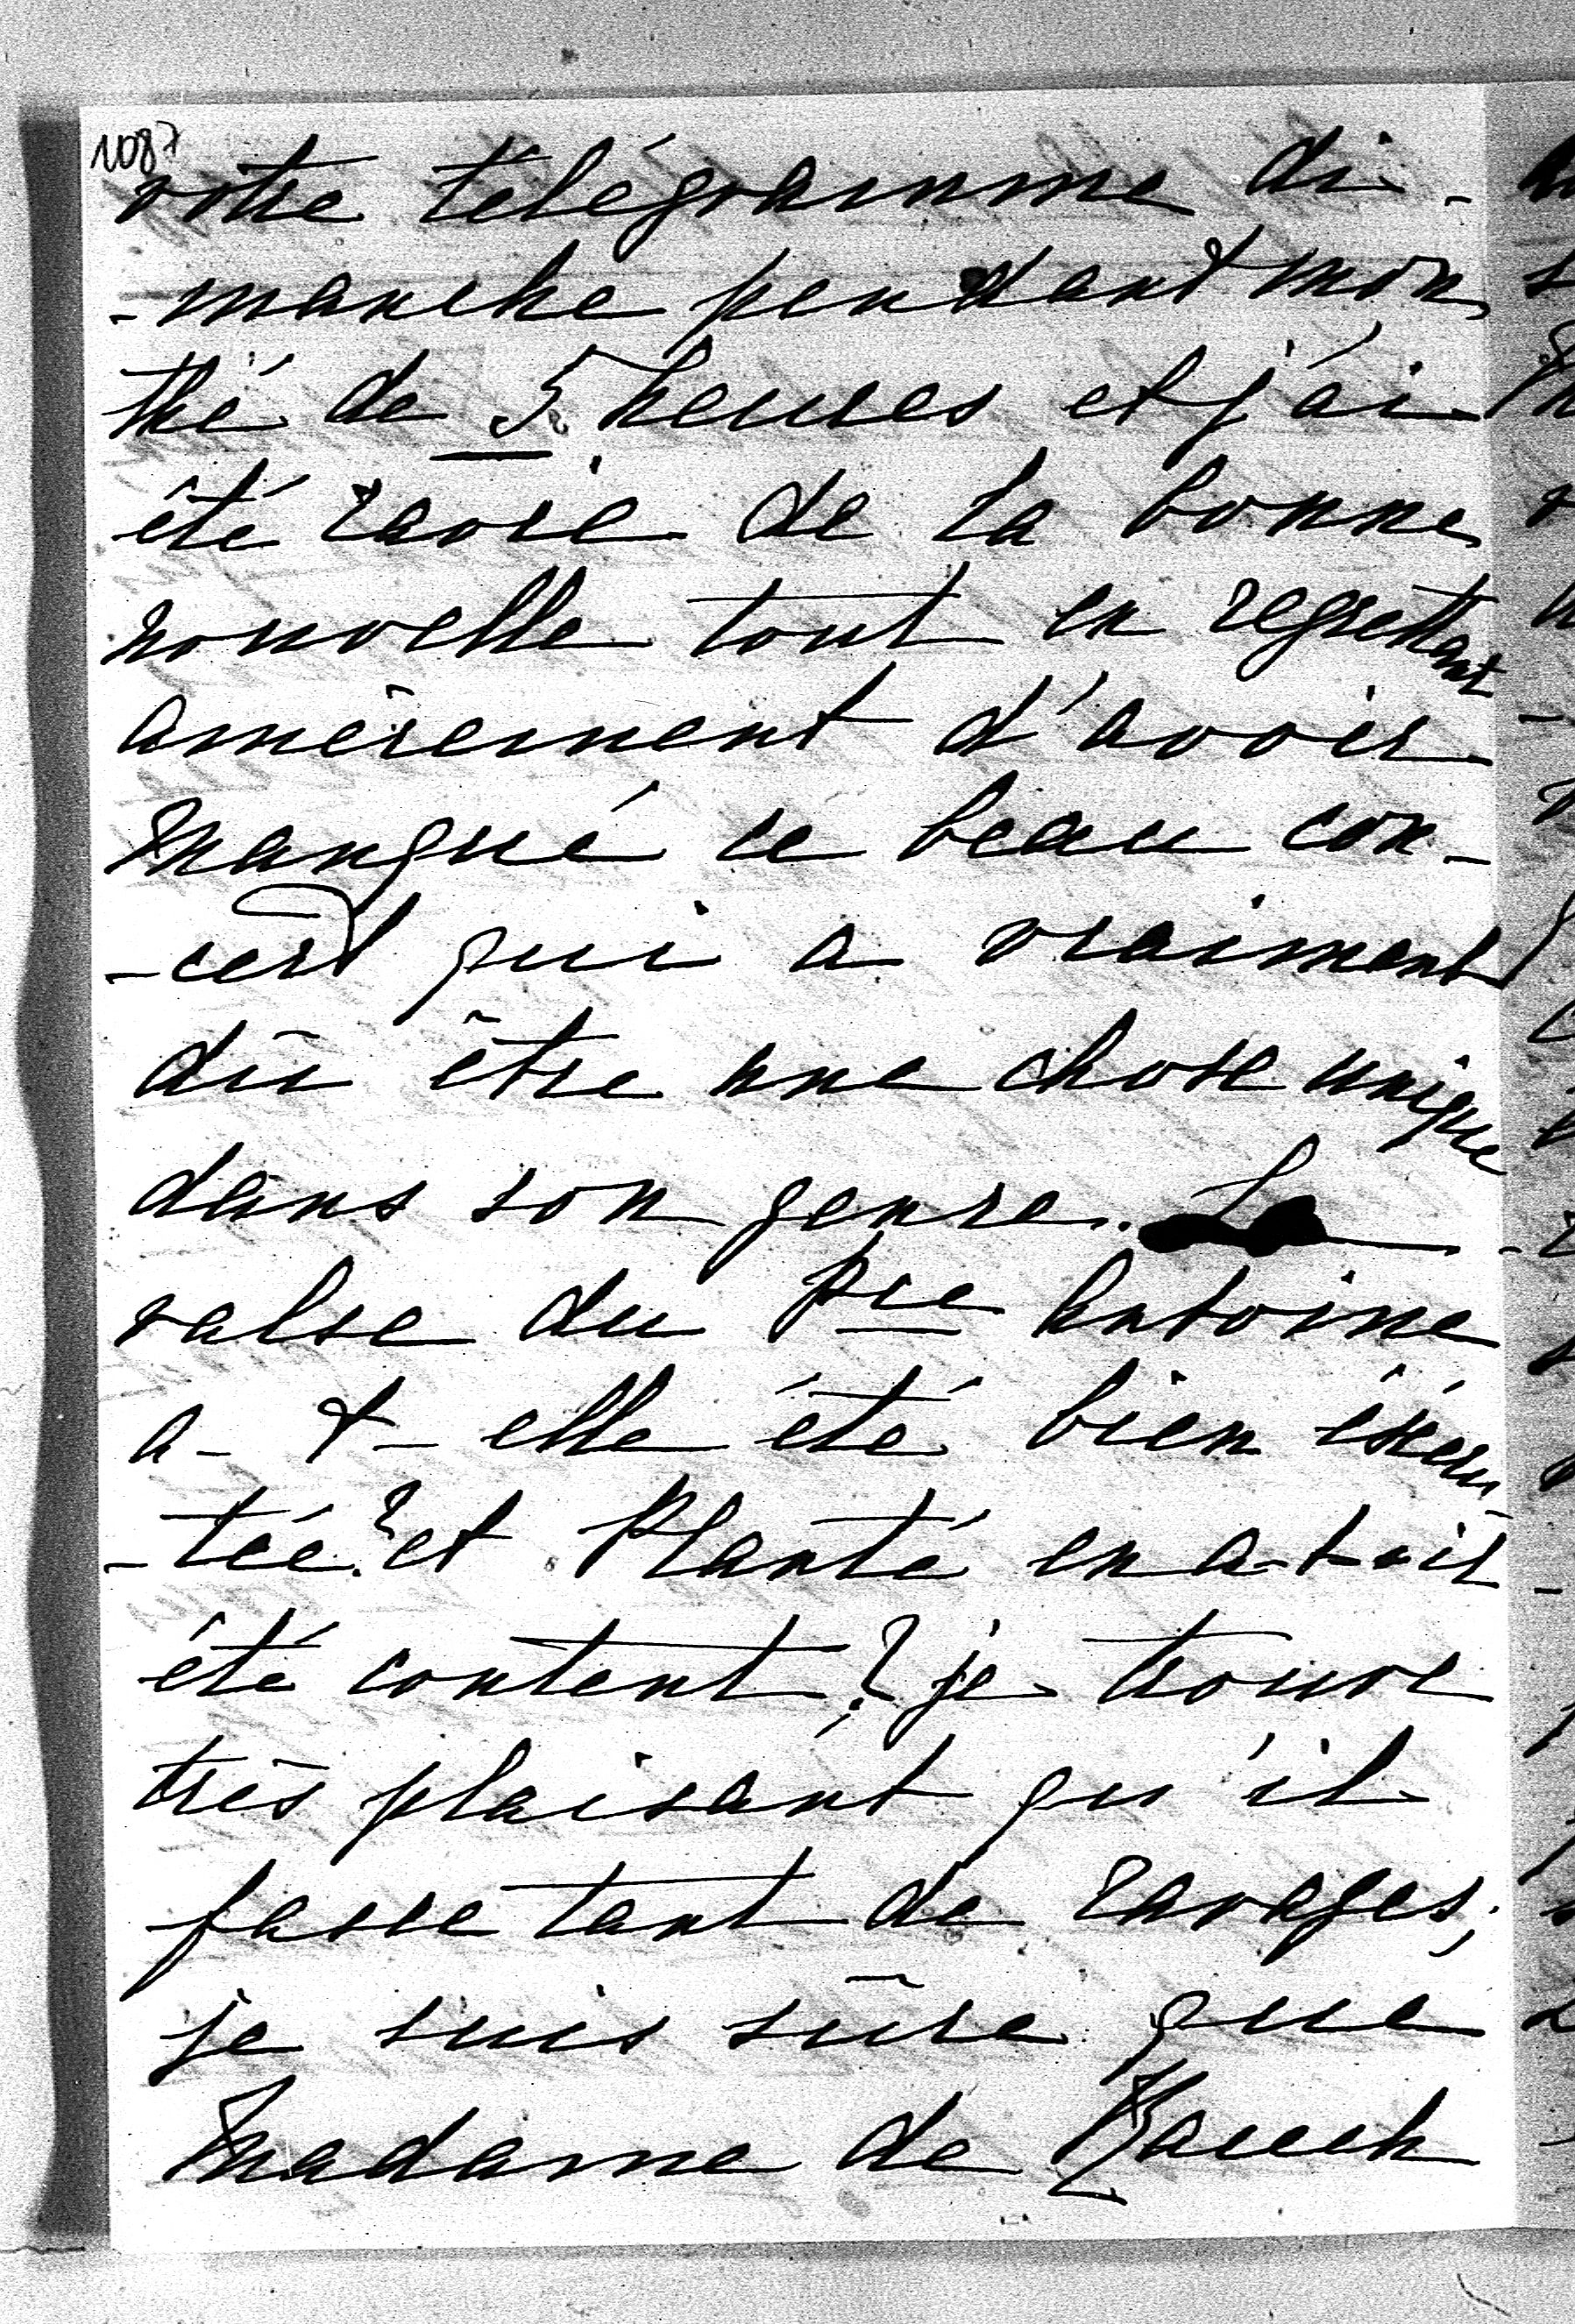 1087
votre télégramme di-
-manche pendant mon
thé de 5 heures et j'ai
été ravie de la bonne
nouvelle tout en regrettant
amèrement d'avoir
manqué ce beau con-
-cert qui a vraiment
dû être une chose unique
dans son genre. La
valse du Pce Antoine
a-t-elle été bien éxécu-
-tée? et Planté en a-t-il
été content? je trouve
très plaisant qu'il
fasse tant de ravages;
je suis sûre que
Madame de